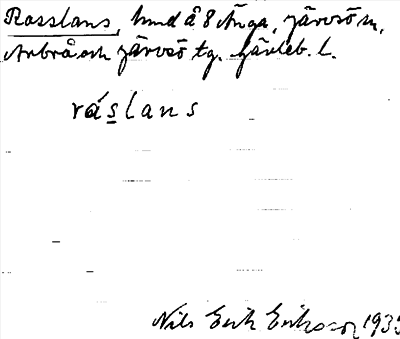 Rosslans, hmd å 8 Änga, Järvsö sn,
Arbrå och Järvsö tg. Gävleb. l.
råslans
Nils Erik Eriksson 193